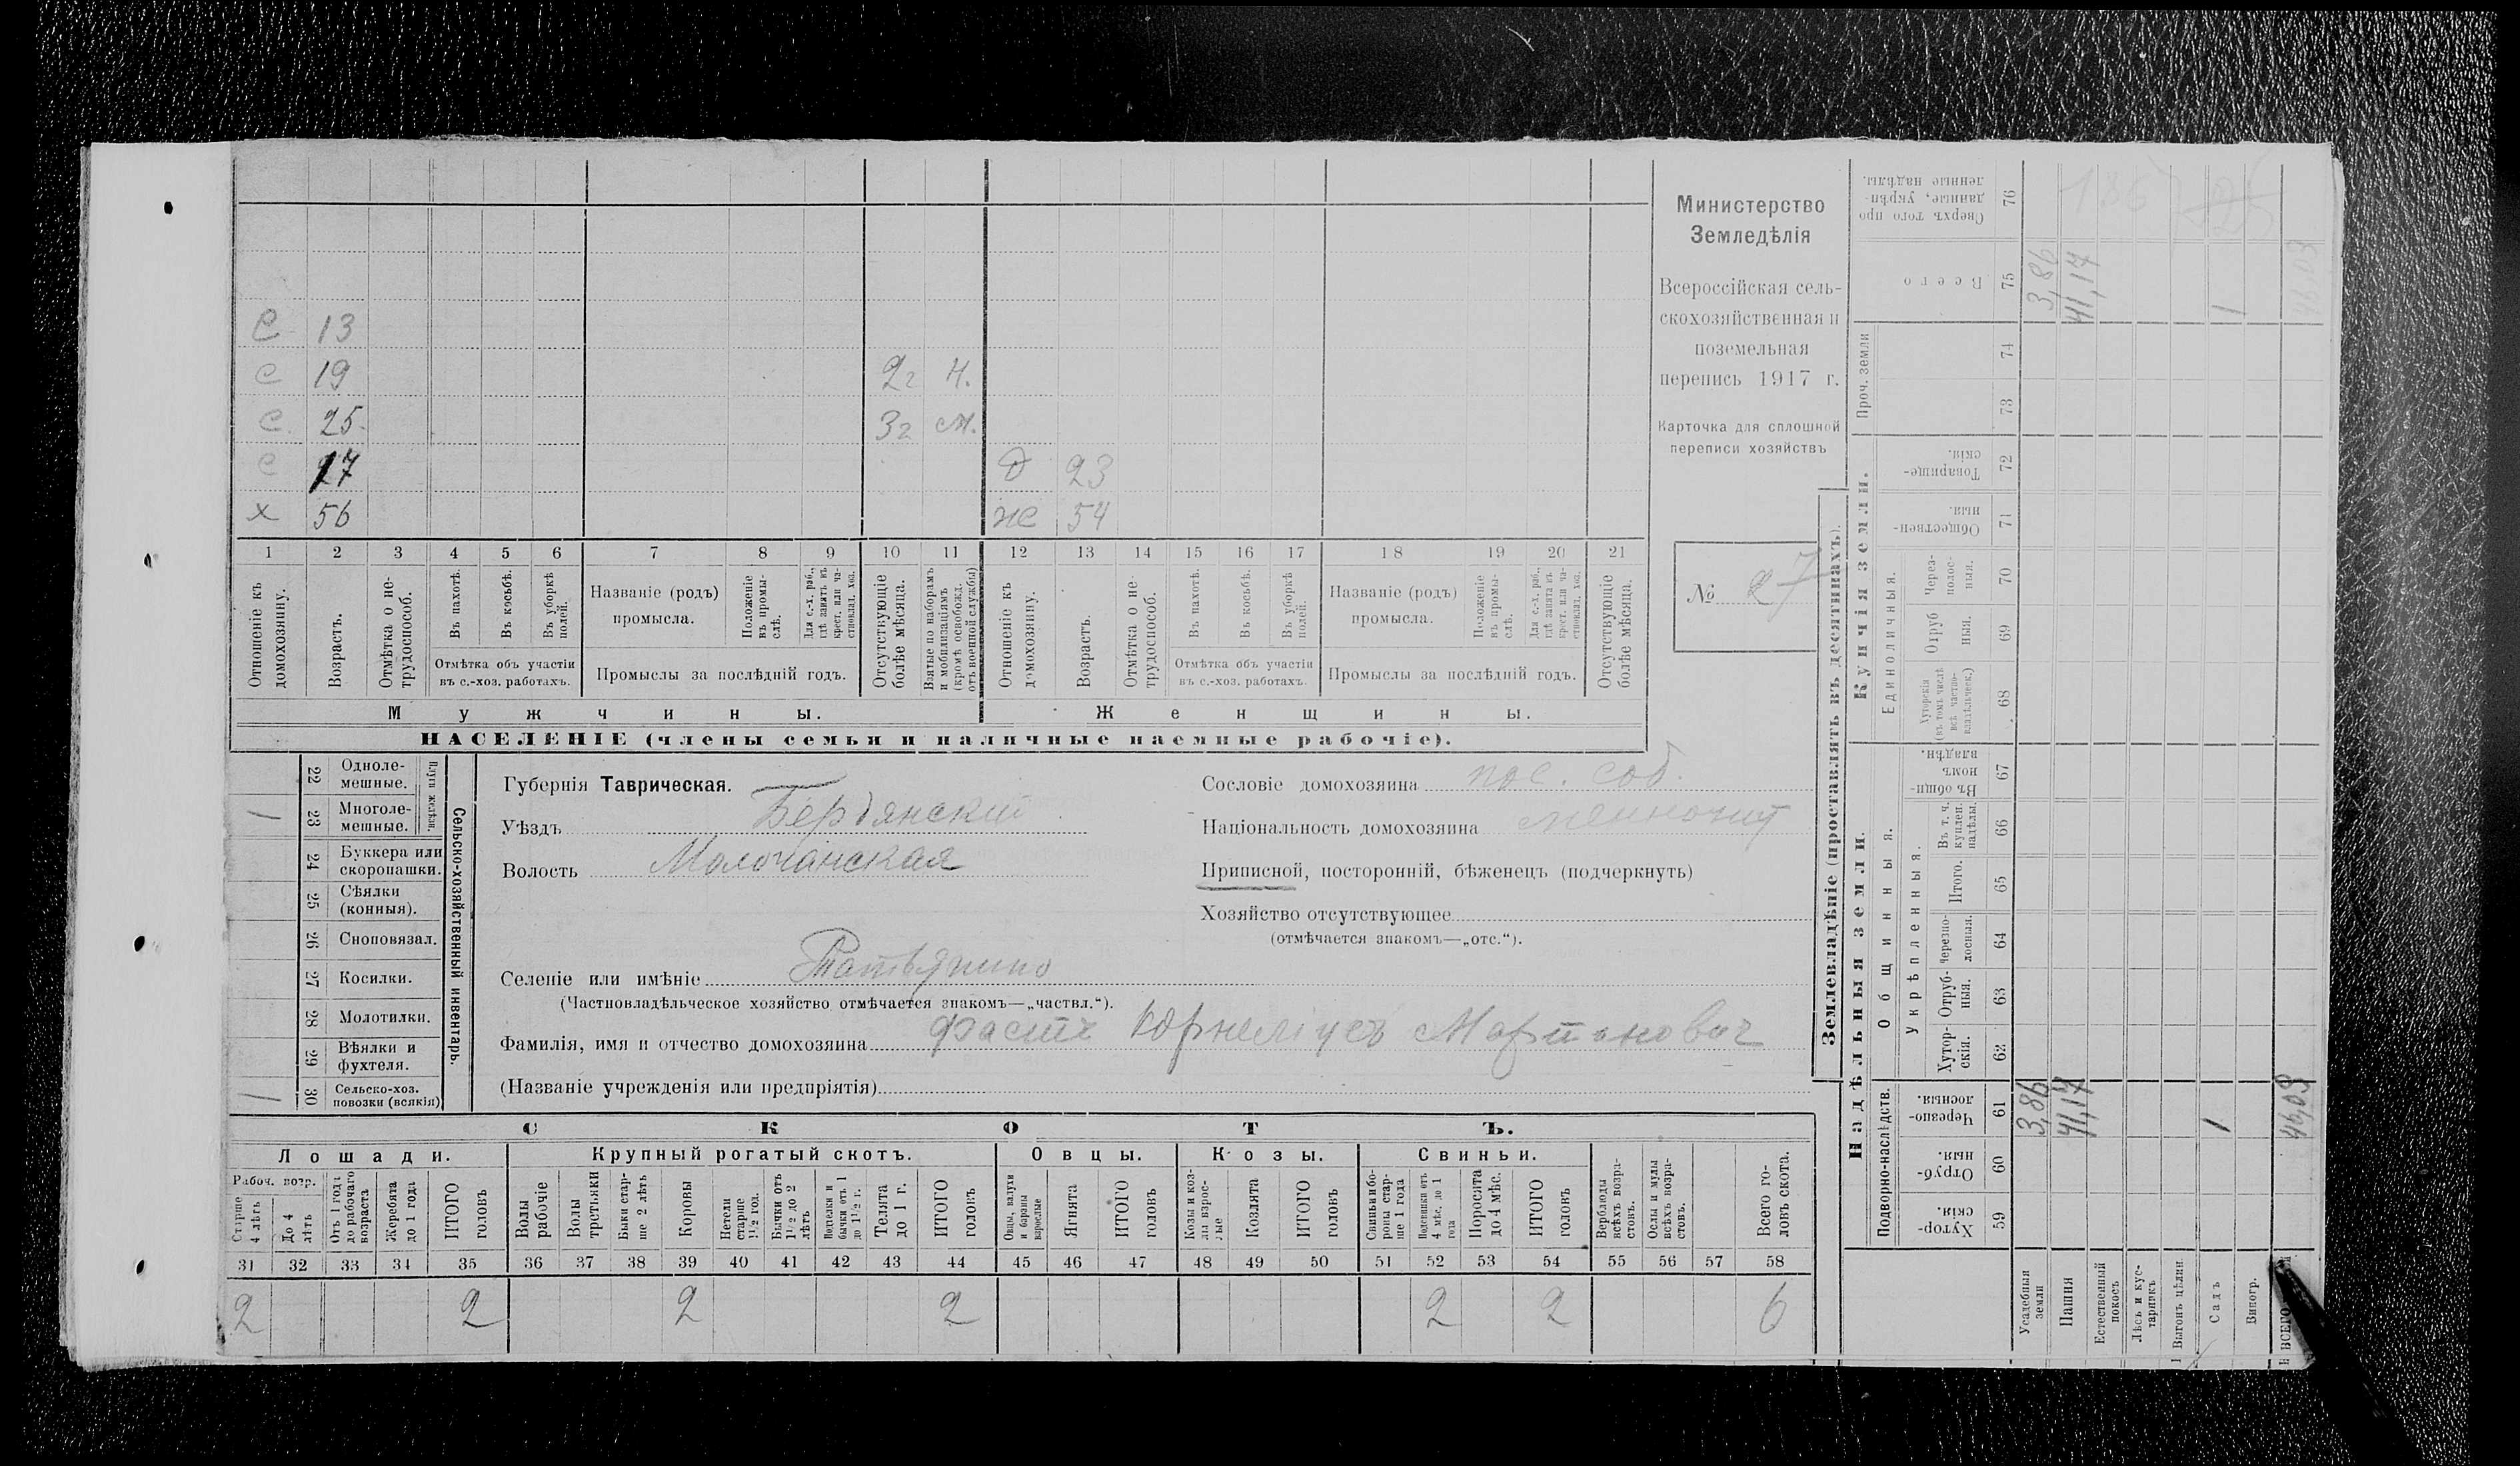 С 13
С 19 2г н.
С 25 3г м.
С 17 д 23
х 56 же 54
1 2 3 4 5 6 7 8 9 10 11 12 13 14 15 16 17 18 19 20 21
Отношеніе къ домохозяину.
Возрастъ.
Отмѣтка о не-
трудоспособ.
Въ пахотѣ.
Въ косьбѣ.
Въ уборкѣ
полей.
Отмѣтка объ участіи
въ с.-хоз. работахъ.
Названіе (родъ)
промысла.
Положеніе
въ промы-
слѣ.
Для с.-х. раб.,
гдѣ занятъ въ
крест. или ча-
стновлад. хоз.
Промыслы за послѣдній годъ.
Отсутствующіе
болѣе мѣсяца.
Взятые по наборамъ
и мобилизаціямъ
(кромѣ освобожд.
отъ военной службы)
Отношеніе къ
домохозяину.
Возрастъ.
Отмѣтка о не-
трудоспособ.
Въ пахотѣ.
Въ косьбѣ.
Въ уборкѣ
полей.
Отмѣтка объ участіи
въ с.-хоз. работахъ.
Названіе (родъ)
промысла.
Положеніе
въ промы-
слѣ.
Для с.-х. раб.,
гдѣ занята въ
крест. или ча-
стновлад. хоз.
Промыслы за послѣдній годъ.
Отсутствующіе
болѣе мѣсяца.
Мужчины.
Женщины.
НАСЕЛЕНІЕ (члены семьи и наличные наемные рабочіе).
Министерство
Земледѣлія
Всероссійская сель-
скохозяйственная и
поземельная
перепись 1917 г.
Карточка для сплошной
переписи хозяйствъ
№ 27
Сельско-хозяйственный инвентарь.
Плуги желѣзн.
22 Одноле-
мешные.
1 23 Многоле-
мешные.
24 Буккера или
скоропашки.
25 Сѣялки
(конныя).
26 Сноповязал.
27 Косилки.
28 Молотилки.
29 Вѣялки и
фухтеля.
1 30 Сельско-хоз.
повозки (всякія)
Губернія Таврическая.
Уѣздъ Бердянский
Волость Молочанская
Сословіе домохозяина пос. соб.
Національность домохозяина меннонит
Приписной, посторонній, бѣженецъ (подчеркнуть)
Хозяйство отсутствующее
(отмѣчается знакомъ—„отс.“).
Селеніе или имѣніе Татьянино
(Частновладѣльческое хозяйство отмѣчается знакомъ—„частвл.“).
Фамилія, имя и отчество домохозяина Фастъ Корнеліусъ Мартинович
(Названіе учрежденія или предпріятія)
СКОТЪ.
Лошади.
Крупный рогатый скотъ.
Овцы.
Козы.
Свиньи.
Рабоч. возр.
Старше
4 лѣтъ
До 4
лѣтъ
Отъ 1 года
до рабочаго
возраста
Жеребята
до 1 года
ИТОГО
головъ
Волы
рабочіе
Волы
третьяки
Быки стар-
ше 2 лѣтъ
Коровы
Нетели
старше
1½ год.
Бычки отъ
1½ до 2
лѣтъ
Подтелки и
бычки отъ 1
до 1½ г.
Телята
до 1 г.
ИТОГО
головъ
Овцы, валухи
и бараны
взрослые
Ягнята
ИТОГО
головъ
Козы и коз-
лы взрос-
лые
Козлята
ИТОГО
головъ
Свиньи и бо-
ровы стар-
ше 1 года
Подсвинки отъ
4 мѣс. до 1
года
Поросята
до 4 мѣс.
ИТОГО
головъ
Верблюды
всѣхъ возра-
стовъ.
Ослы и мулы
всѣхъ возра-
стовъ.
Всего го-
ловъ скота.
31 32 33 34 35 36 37 38 39 40 41 42 43 44 45 46 47 48 49 50 51 52 53 54 55 56 57 58
2 2 2 2 2 2 6
Землевладѣніе (проставлять въ десятинахъ).
Надѣльныя земли.
Купчія земли.
Проч. земли
Подворно-наслѣдств.
Общинныя.
Укрѣпленныя.
Единоличныя.
Сверхъ того про-
данные, укрѣп-
ленные надѣлы. 76
Всего 75
74
73
Товарище-
скія. 72
Обществен-
ныя. 71
Через-
полос-
ныя. 70
Отруб
ныя. 69
Хуторскія
(въ томъ числѣ
всѣ частно-
владѣльческ.) 68
Въ общи-
номъ
владѣн. 67
Въ т. ч.
куплен.
надѣлы. 66
Итого. 65
Черезпо-
лосныя. 64
Отруб-
ныя. 63
Хутор-
скія. 62
Черезпо-
лосныя. 61
Отруб-
ныя. 60
Хутор-
скія. 59
Усадебныя
земли
Пашня
Естественный
покосъ
Лѣсъ и кус-
тарникъ
Выгонъ цѣлин.
Садъ
Виногр.
ВСЕГО
3,86
41,17
1
46,03
3,86
41,17
1
46,03